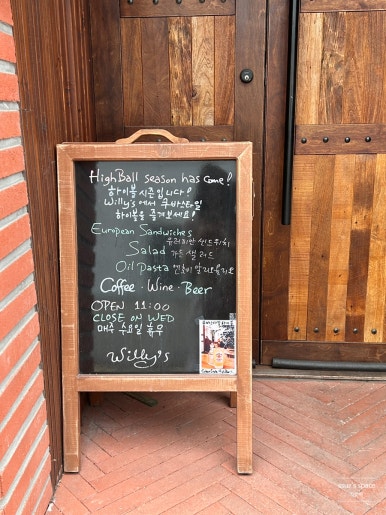 HighBall season has come!
하이볼 시즌입니다!
Willy's 에서 쿠바스타일
하이볼을 즐겨보세요!
European Sandwiches
유러피안 샌드위치
Salad 가든 샐러드
Oil Pasta 엔초비 알리오올리오
Coffee · Wine · Beer
OPEN 11:00
CLOSE ON WED
매주 수요일 휴무
Willy's